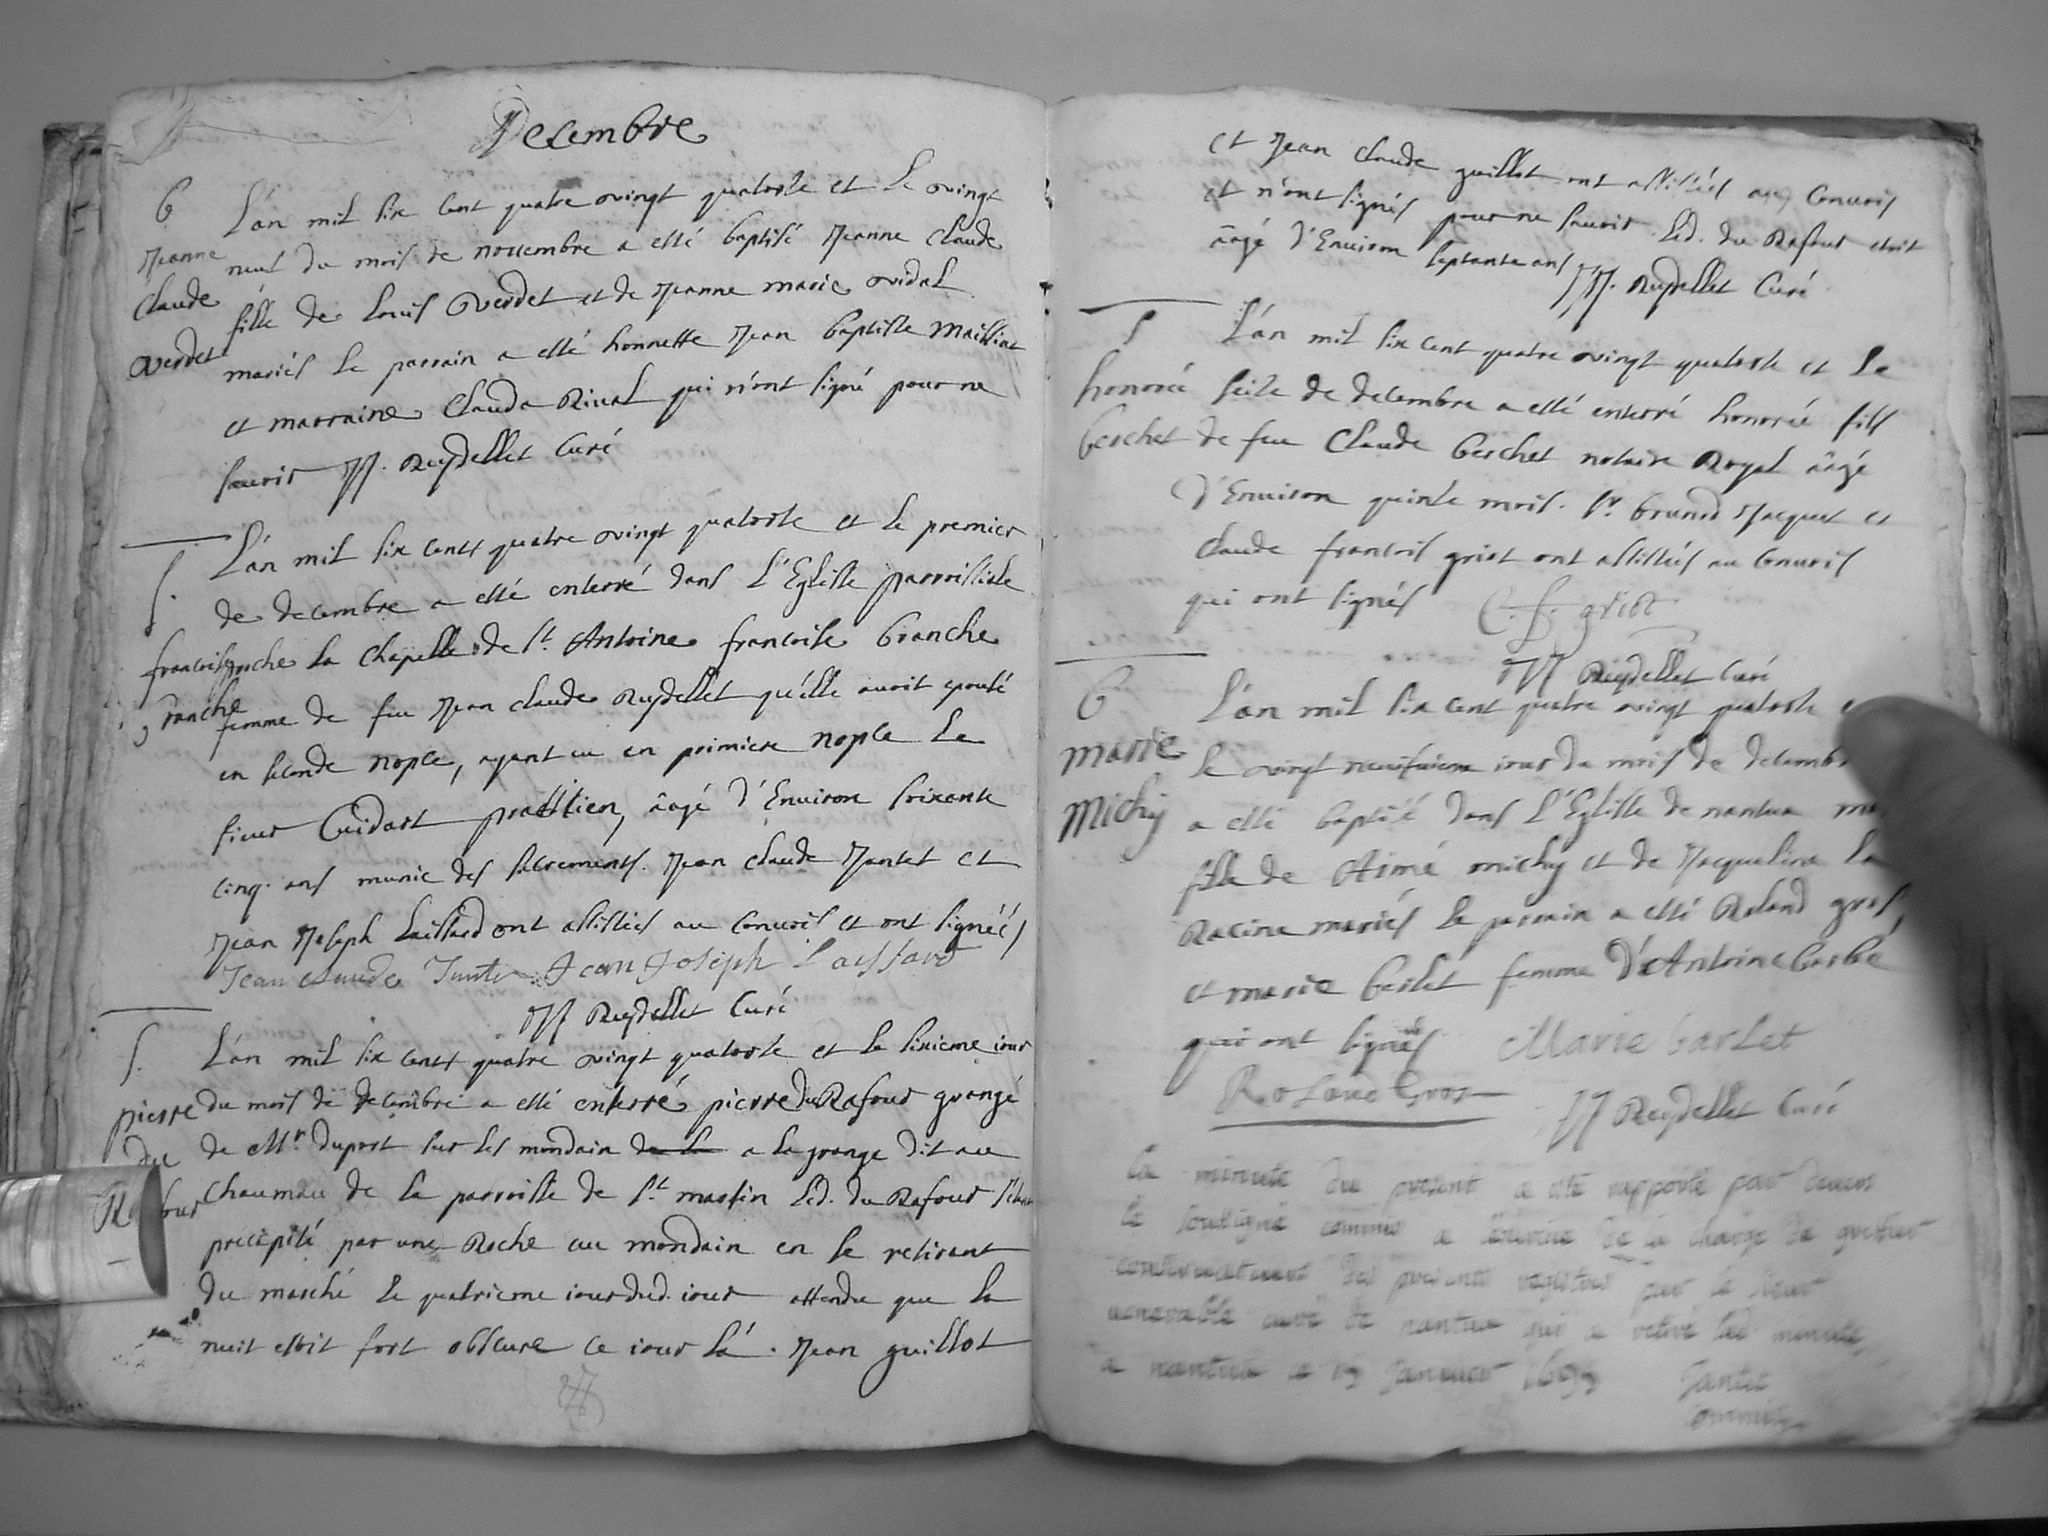 Decembre
B
Jeanne
Claude
Verdet
L'an mil six cent quatre vingt quatorze et le vingt
neuf du mois de novembre a esté baptisé Jeanne Claude
fille de Louis Verdet et de Jeanne marie vidal
mariés le parrain a esté honnette Jean baptiste Maissiat
et marraine Clauda Rival qui n'ont signé pour ne
savoir JJ. Reydellet Curé
S.
francoise
branche
L'an mil six cents quatre vingt quatorze et le premier
de decembre a esté enterré dans l'Eglise parroissiale
proche la chapelle de St. Antoine francoise branche
femme de feu Jean claude Reydellet qu'elle avoit epousé
en seconde nopce, ayant eu en primiere nopce le
sieur Cuidart prattitien, âagé d'Environ soixante
cinq ans munie des sacrements. Jean claude Jantet et
Jean Joseph Laissard ont assistés au Convois et ont signéé
Jean claude Jantet Jean Joseph Laissard
JJ Reydellet Curé
S.
pierre
du
L'an mil six cents quatre vingt quatorze et le sixieme jour
du mois de decembre a esté enterré pierre du Rafour grangé
de Mr. duport sur les mondain de la a la grange dit au
Chaumau de la parroisse de St. martin led. du Rafour s'étant
precipité par une Roche au mondain en se retirant
du marché le quatrieme jour dud. jour attendu que la
nuit estoit fort obscure ce jour là. Jean guillot
et Jean claude guillot ont assistés aux Convois
et n'ont signés pour ne savoir. Led. du Rafour etoit
âagé d'Environ septante ans JJ. Reydellet Curé
S
honoré
berchet
L'an mil six cent quatre vingt quatorze et le
seize de decembre a esté enterré honoré fils
de feu Claude berchet notaire Royal âagé
d'Environ quinze mois. Sr. brunod Jacquet et
claude francois griot ont assistés au Convois
qui ont signés C. f. griot
JJ Reydellet Curé
B
marie
Michy
L'an mil six cent quatre vingt quatorze
le vingt neufvieme jour du mois de decembre
a esté baptisé dans l'Eglise de nantua
fille de Aimé michy et de Jacqueline la
Racine mariés le parrain a esté Roland gros,
et marie barlet femme d'Antoine barbé
qui ont signés Marie barlet
Roland Gros
JJ Reydellet Curé
la minute du present a été rapporté par devant
le soussigné commis a l'exercice de la charge de greffier
conservateur des presents registres par le sieur
venerable curé de nantua qui a retiré lad minute
a nantua a 19 Janvier 1695 Jantet
commis